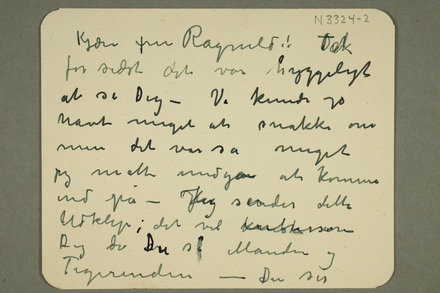 N3324-2
Kjære fru Ragnhild!! Tak
for sidst det var hyggeligt
at se Dig – Vi kunde jo
havt meget at snakke om
men det var så meget
jeg måtte undgå at komme
ind på – Jeg sender dette
Udklip; det vil
Dig da Du så Manden og
Tigerinden – Du ses